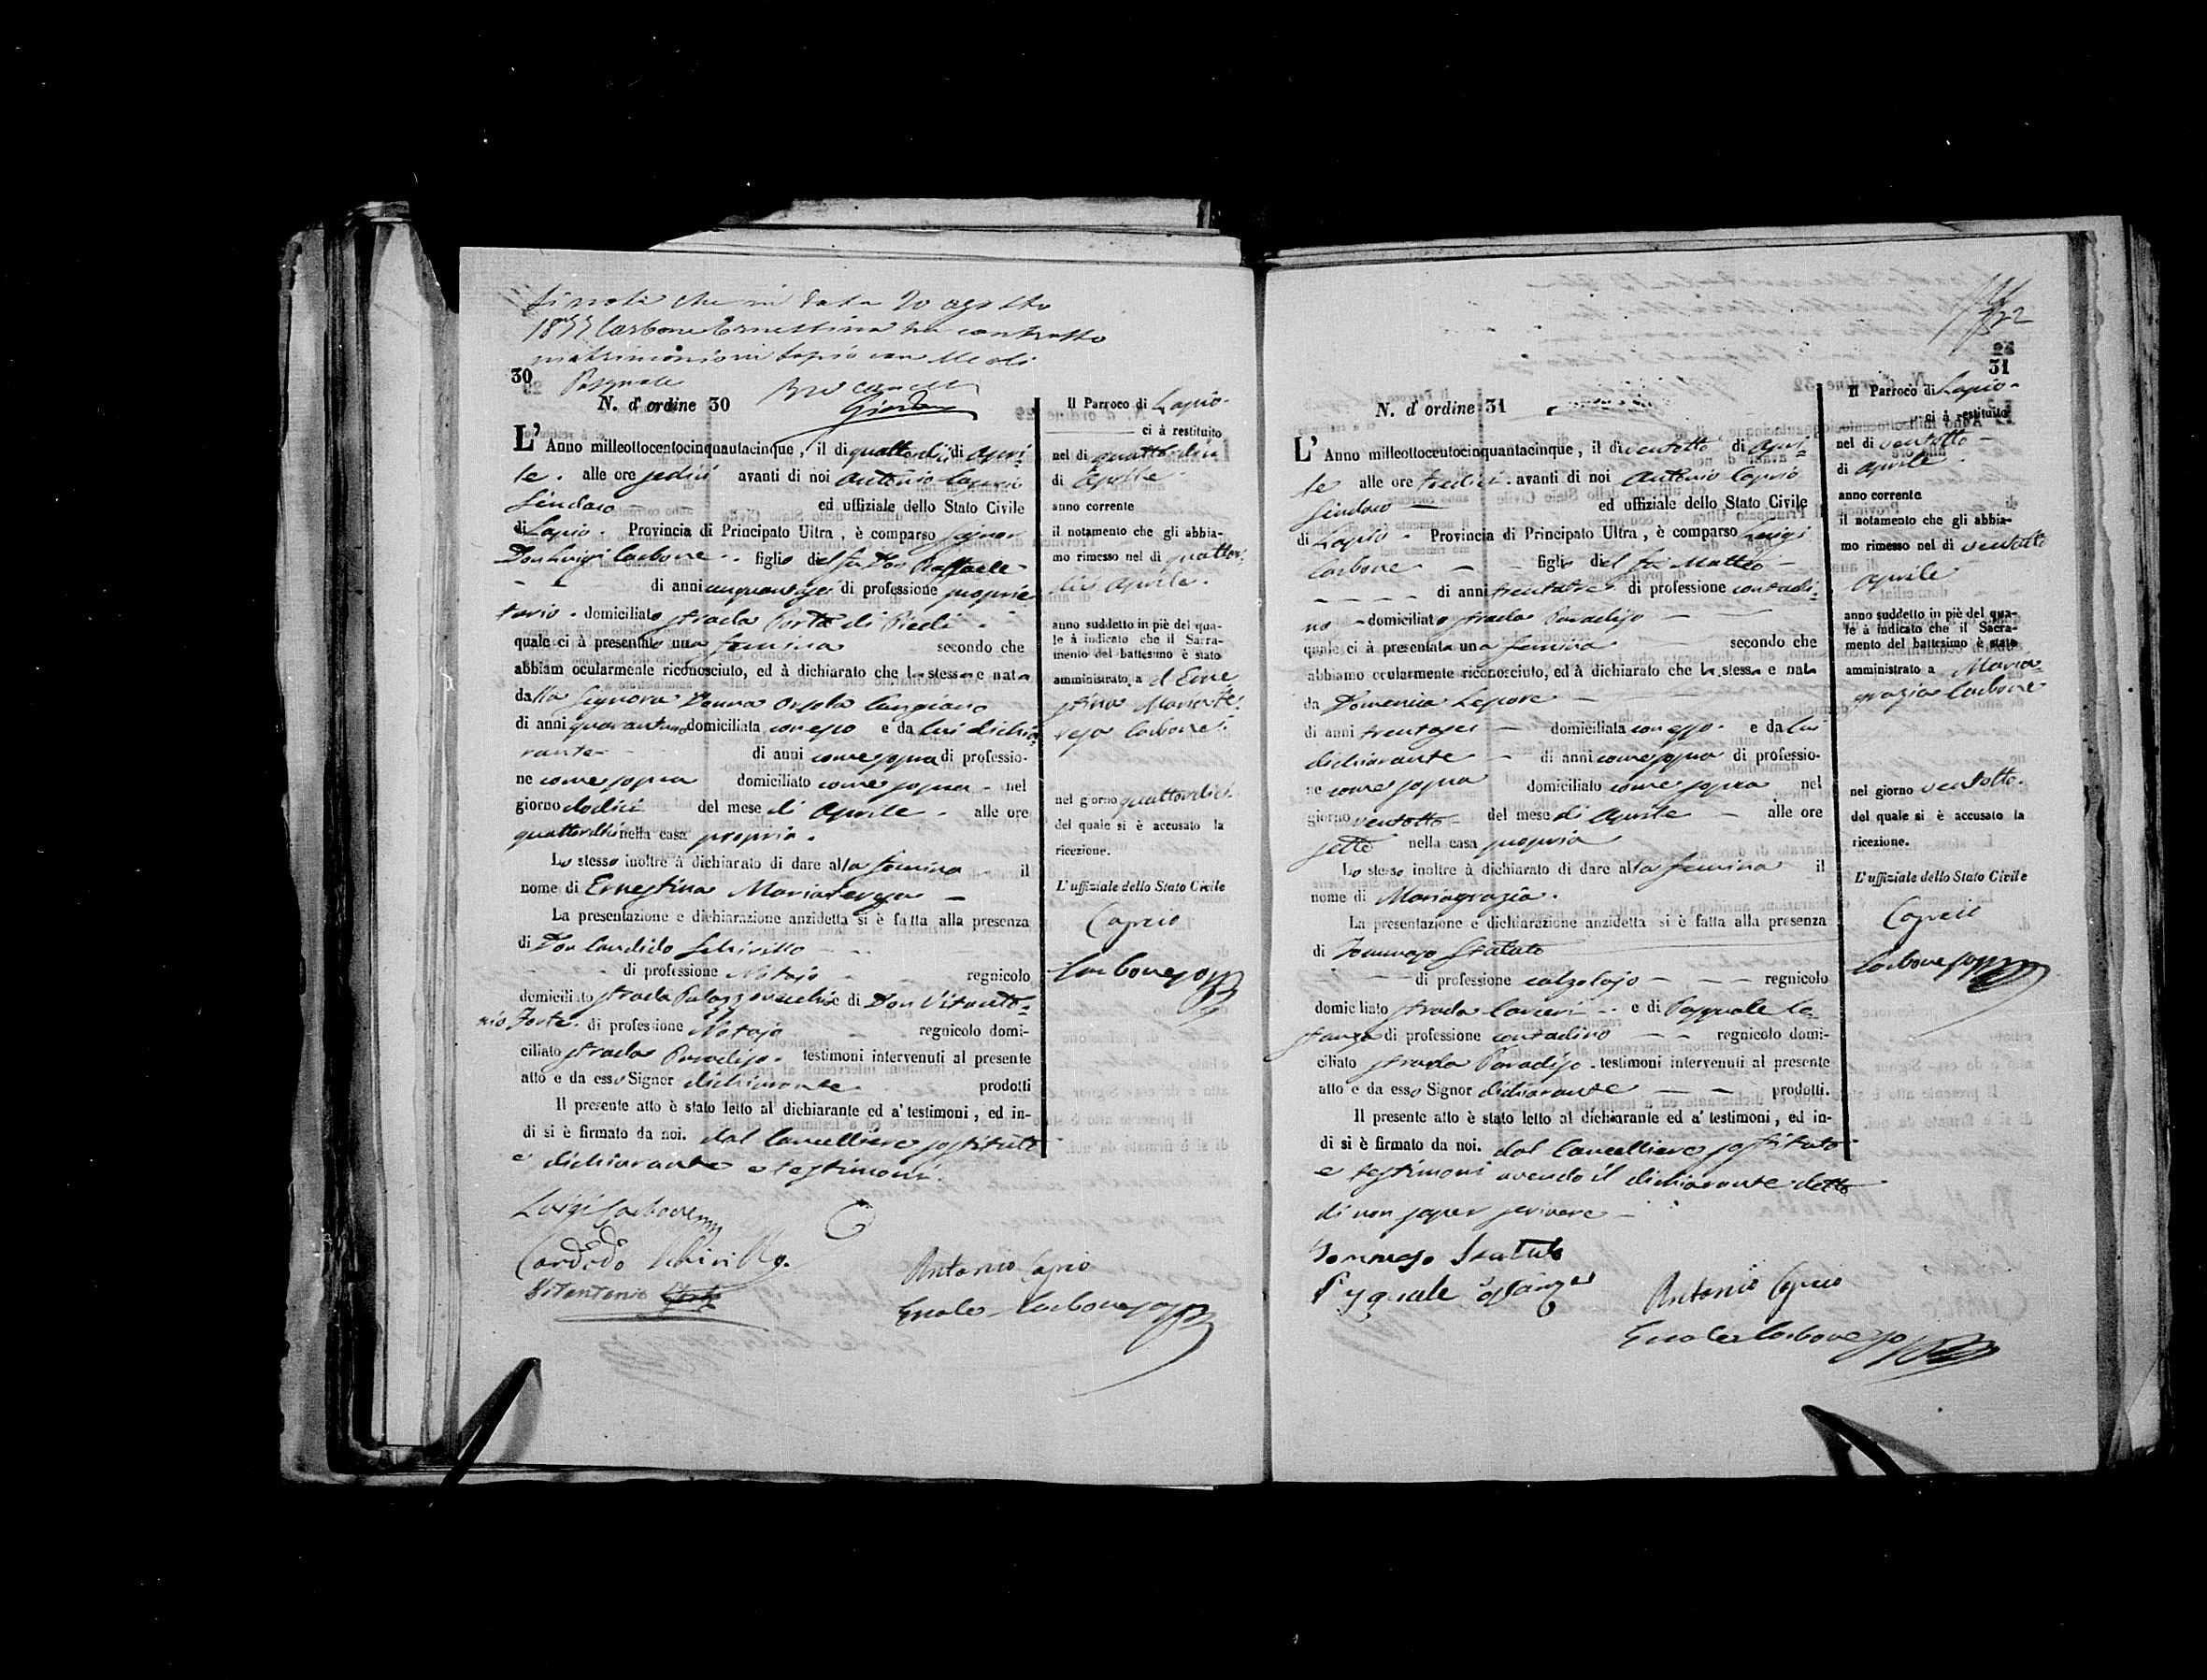 Si nota che in data 20 agosto
Carbone Ernestina ha contratto
matrimonio in Lapio con
Pasquale
30
N. d'ordine 30
L'Anno milleottocentocinquantacinque, il dì quattordici di Apri-
le. alle ore sedici avanti di noi Antonio Caprio
Sindaco ed uffiziale dello Stato Civile
di Lapio. Provincia di Principato Ultra, è comparso Signor
Don Luigi Carbone figlio del fu Don Raffaele
di anni cinquantasei di professione proprie
tario. domiciliato strada Porta di Piedi
quale ci à presentato una femina secondo che
abbiam ocularmente riconosciuto, ed à dichiarato che la stessa e nata
dalla Signora Donna Orsola Cangiano
di anni quarantuno domiciliata con esso e da lui dichia
rante di anni come sopra di professio-
ne come sopra domiciliato come sopra nel
giorno dodici del mese di Aprile. alle ore
quattordici nella casa propria.
Lo stesso inoltre à dichiarato di dare alla femina il
nome di Ernestina Mariateresa
La presentazione e dichiarazione anzidetta si è fatta alla presenza
di Don Candido Schirillo
di professione Notajo regnicolo
domiciliato strada Palazzo vecchio e di Don Vitanto-
nio Forte. di professione Notajo regnicolo domi-
ciliato strada Paradiso. testimoni intervenuti al presente
atto e da esso Signor dichiarante prodotti
Il presente atto è stato letto al dichiarante ed a' testimoni, ed in-
di si è firmato da noi. dal Cancelliere sostituto
e dichiarante e testimoni.
Luigi Carbone
Candido Schirillo
Vitantonio Forte
Antonio Caprio
Carbone
Il Parroco di Lapio
ci à restituito
nel dì quattordici
di Aprile
anno corrente
il notamento che gli abbia-
mo rimesso nel dì quattor
dici Aprile.
anno suddetto in piè del qua-
le à indicato che il Sacra-
mento del battesimo è stato
amministrato a d Erne
stina Mariate
resa Carbone.
nel giorno quattordici
del quale si è accusato la
ricezione.
L'uffiziale dello Stato Civile
Caprio
Carbone
31
N. d'ordine 31
L'Anno milleottocentocinquantacinque, il dì ventotto di Apri-
le alle ore tredici. avanti di noi Antonio Caprio
Sindaco ed uffiziale dello Stato Civile
di Lapio. Provincia di Principato Ultra, è comparso Luigi
Carbone figlio del fu Matteo
di anni trentatre di professione contadi-
no domiciliato strada Paradiso
quale ci à presentata una femina secondo che
abbiamo ocularmente riconosciuto, ed à dichiarato che la stessa e nata
da Domenica Lepore
di anni trentasei domiciliata con esso. e da lui
dichiarante di anni come sopra di professio-
ne come sopra domiciliato come sopra nel
giorno ventotto del mese di Aprile alle ore
sette nella casa propria
Lo stesso inoltre à dichiarato di dare alla femina il
nome di Mariagrazia.
La presentazione e dichiarazione anzidetta si è fatta alla presenza
di Tommaso Statuto
di professione calzolajo regnicolo
domiciliato strada Carceri e di Pasquale Co
stanza di professione contadino regnicolo domi-
ciliato strada Paradiso. testimoni intervenuti al presente
atto e da esso Signor dichiarante prodotti.
Il presente atto è stato letto al dichiarante ed a' testimoni, ed in-
di si è firmato da noi. dal Cancelliere sostituto
e testimoni avendo il dichiarante detto
di non saper scrivere
Tommaso Statuto
Pasquale Costanza
Antonio Caprio
Carbone
Il Parroco di Lapio
ci à restituito
nel dì ventotto
di Aprile
anno corrente
il notamento che gli abbia-
mo rimesso nel dì ventotto
Aprile
anno suddetto in piè del qua-
le à indicato che il Sacra-
mento del battesimo è stato
amministrato a Maria
grazia Carbone
nel giorno ventotto.
del quale si è accusato la
ricezione.
L'uffiziale dello Stato Civile
Caprio
Carbone